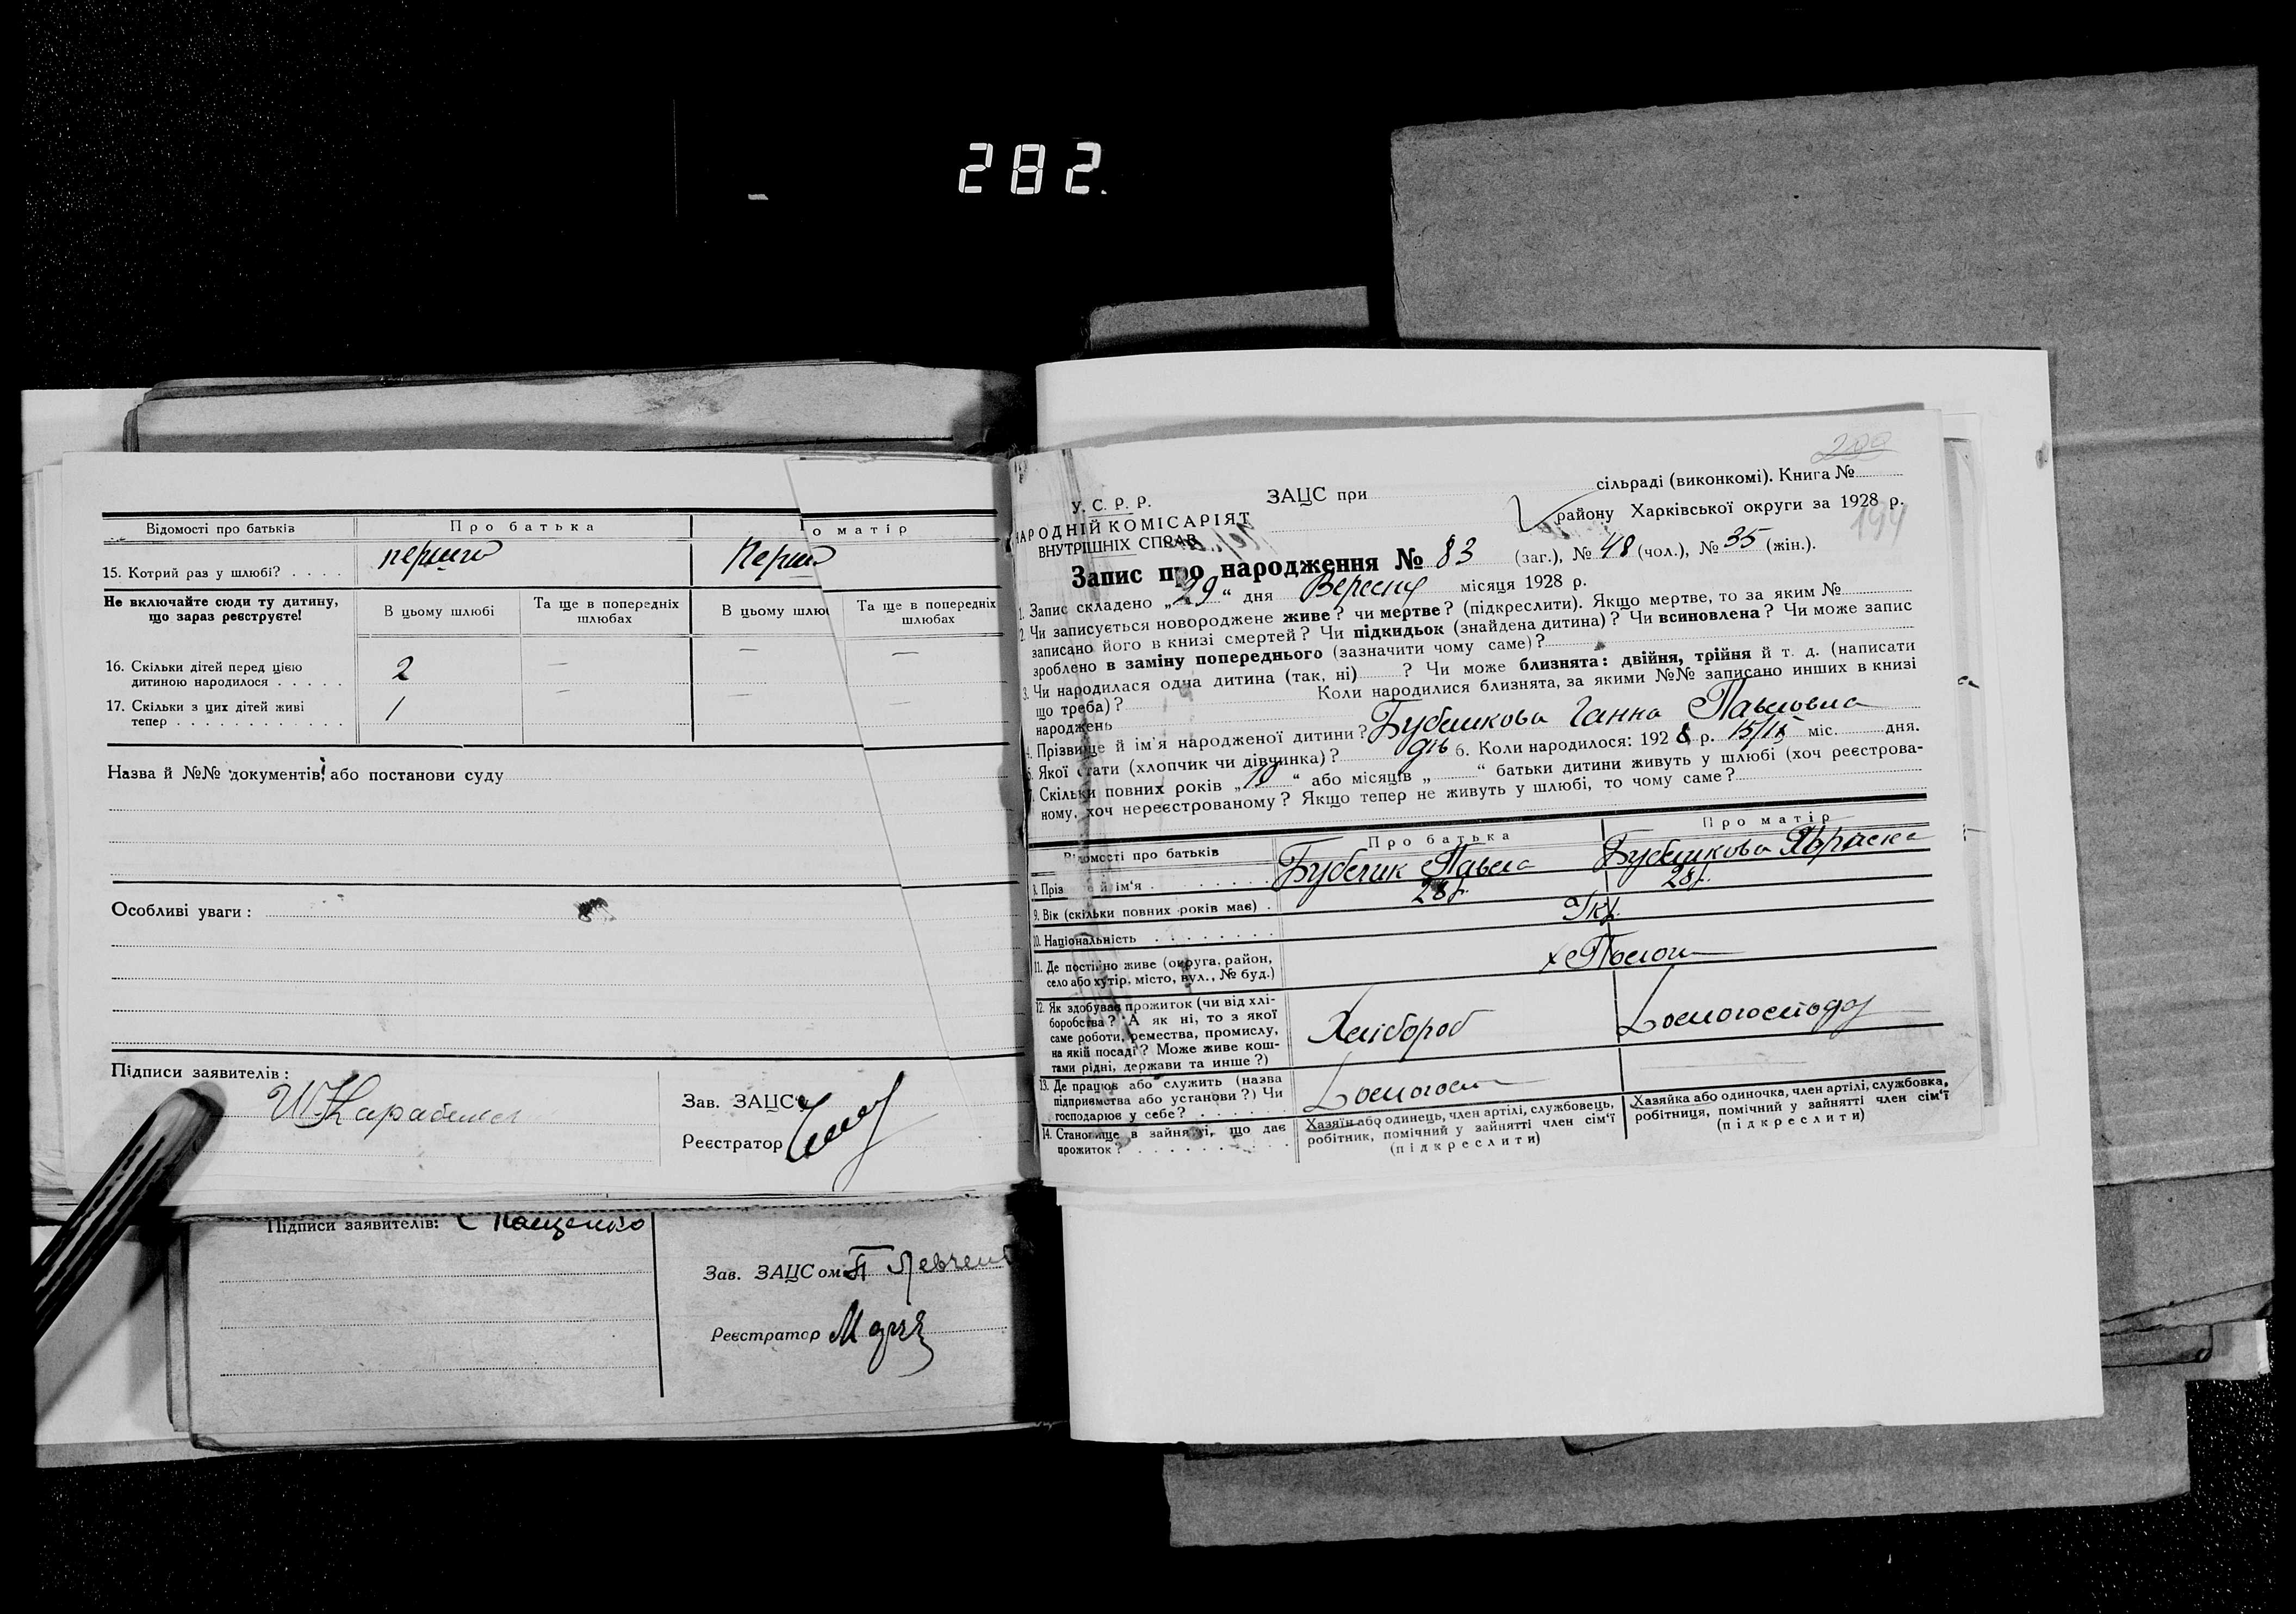 282.
Відомості про батьків
Про батька
о матір
15. Котрий раз у шлюбі? . . . .
перший
Не включайте сюди ту дитину,
що зараз реєструєте!
В цьому шлюбі
Та ще в попередніх
шлюбах
В цьому шлю
Та ще в попередніх
шлюбах
16. Скільки дітей перед цією
дитиною народилося . . . . .
2
—
—
—
17. Скільки з цих дітей живі
тепер . . . . . . . . . . . .
1
—
—
—
Назва й №№ документів, або постанови суду
Особливі уваги:
Підписи заявителів:
Зав. ЗАЦС
Реєстратор
Підписи заявителів: Пащенко
Зав. ЗАЦСом П Левчен
Реєстратор
200
У. С. Р. Р.
ЗАЦС при
сільраді (виконкомі). Книга №
НАРОДНІЙ КОМІСАРІЯТ
ВНУТРІШНІХ СПРАВ
району Харківської округи за 1928 р.
194
Запис про народження № 83 (заг.), № 48 (чол.), № 35 (жін.).
1. Запис складено „29“ дня Вересня місяця 1928 р.
2. Чи записується новороджене живе? чи мертве? (підкреслити). Якщо мертве, то за яким №
записано його в книзі смертей? Чи підкидьок (знайдена дитина)? Чи всиновлена? Чи може запис
зроблено в заміну попереднього (зазначити чому саме)?
3. Чи народилася одна дитина (так, ні) ? Чи може близнята: двійня, трійня й т. д. (написати
що треба)? Коли народилися близнята, за якими №№ записано инших в книзі
народжень
4. Прізвище й ім'я народженої дитини? Бубликова Ганна Павловна
5. Якої стати (хлопчик чи дівчинка)? дів 6. Коли народилося: 1928 р. 15/IX міс. дня.
7. Скільки повних років „10“ або місяців „ “ батьки дитини живуть у шлюбі (хоч реєстрова-
ному, хоч нереєстрованому? Якщо тепер не живуть у шлюбі, то чому саме?
Відомості про батьків
Про батька
Про матір
8. Пріз е й ім'я . . . . . . . . .
Бублик Павло
Бубликова
9. Вік (скільки повних років має) .
28 р.
28 р.
10. Національність . . . . . . . .
Укр.
11. Де постійно живе (округа, район,
село або хутір, місто, вул., № буд.)
12. Як здобуває прожиток (чи від хлі-
боробства? А як ні, то з якої
саме роботи, ремества, промислу,
на якій посаді? Може живе кош-
тами рідні, держави та инше?)
Хлібороб
13. Де працює або служить (назва
підприємства або установи?) Чи
господарює у себе? . . . . . .
14. Становище в зайнятті, що дає
прожиток? . . . . . . . . . .
Хазяїн або одинець, член артілі, службовець,
робітник, помічний у зайнятті член сім'ї
(підкреслити)
Хазяйка або одиночка, член артілі, службовка,
робітниця, помічний у зайнятті член сім'ї
(підкреслити)